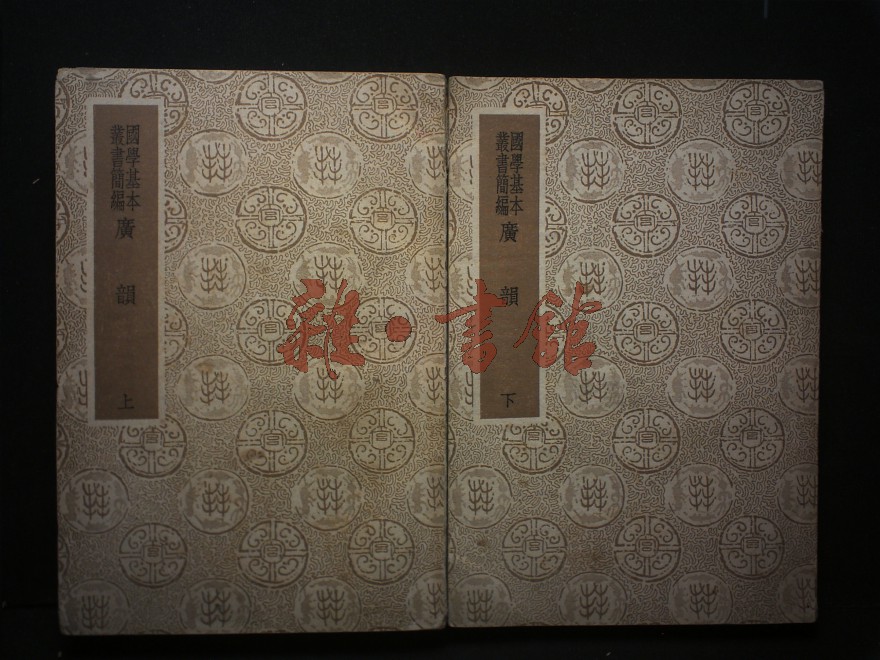 國學基本
叢書簡編
廣韻
上
國學基本
叢書簡編
廣韻
下
雜·書館